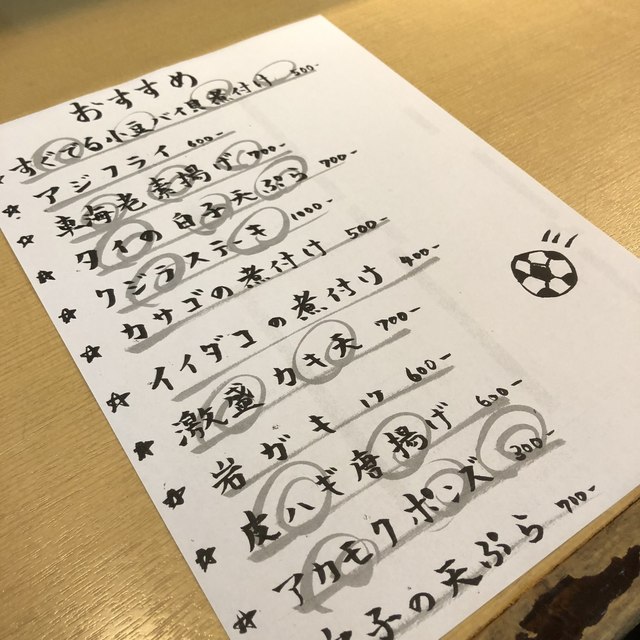 おすすめ
すぐてる小豆バイ貝煮付け 500-
アジフライ 600-
車海老素揚げ 700-
タイの白子天ぷら 700-
クジラステーキ 1000-
カサゴの煮付け 500-
イイダコの煮付け 400-
激盛カキ天 700-
岩ガキ 1ヶ 600-
皮ハギ唐揚げ 600-
アカモクポンズ 300-
子の天ぷら 710-